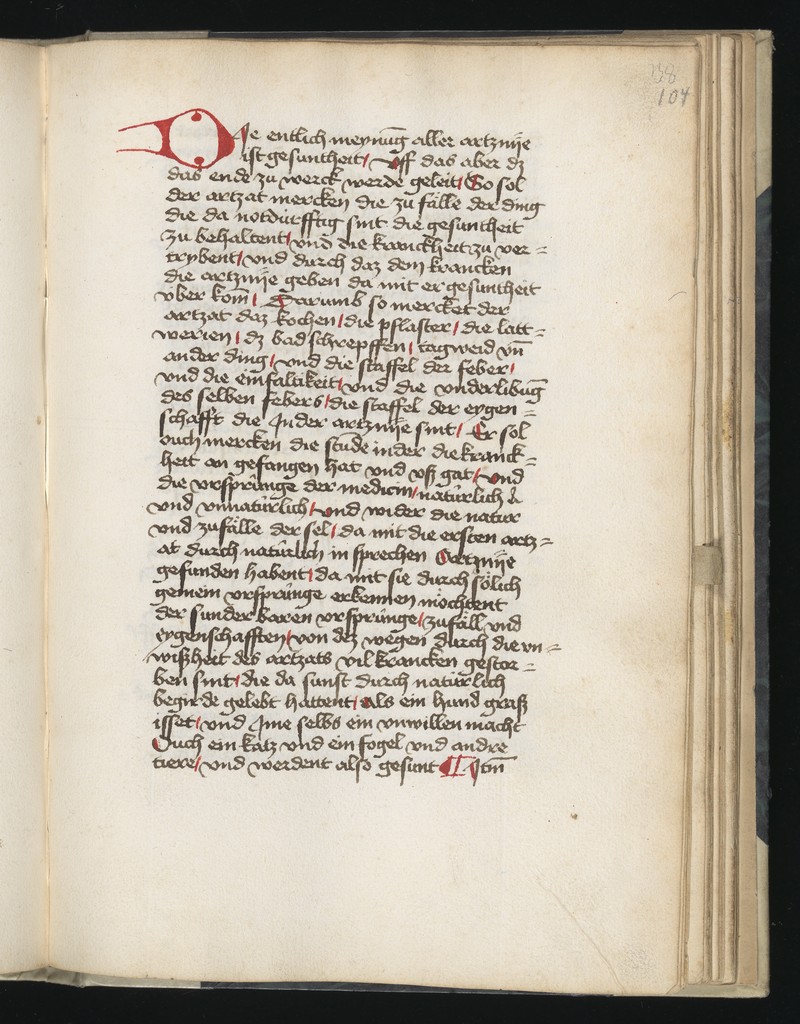 138
104
Die entlich meynu᷑g aller artznÿe
ist gesuntheit / Uff das aber dz
das ende zu werck werde geleit / So sol
der artzat mercken die zu fälle der ding
die da notdürfftig sint die gesuntheit
zu behaltent / vnd die kranckheit zu ver=
trybent / vnd durch daz dem krancken
die artznÿe geben da mit er gesuntheit
v̈ber kom̄ / Darumb so mercket der
artzat daz kochen / die pflaster / die latt=
werien / dz bad schrepffen / tagweid vn̄
ander ding / vnd die staffel der feber /
vnd die einfaltikeit / vnd die vnderlibūg
des selben febers / die staffel der eygen=
schafft die Jn der artznÿe sint / Er sol
ouch mercken die stūde in der die kranck=
heit an gefangen hat vnd vß gat / vnd
die vrsprünge der medicin / natürlich
vnd vnnatürlich / vnd wider die natur
vnd zufälle der sel / da mit die ersten artz=
at durch natürlich in sprechen artznÿe
gefunden habent / da mit sie durch sölich
gemein vrsprünge erkennen möchtent
der sunderbaren vrsprünge / zufäll vnd
eygenschafften / von dez wegen durch die vn=
wißheit des artzats vil krancken gestor=
ben sint / die da sunst durch natürlich
begirde gelebt hattent / Als ein hund graß
isset / vnd Jme selbs ein vnwillen macht
Ouch ein katz vnd ein fogel vnd andre
tiere / vnd werdent also gesunt ¶ Jtm̄